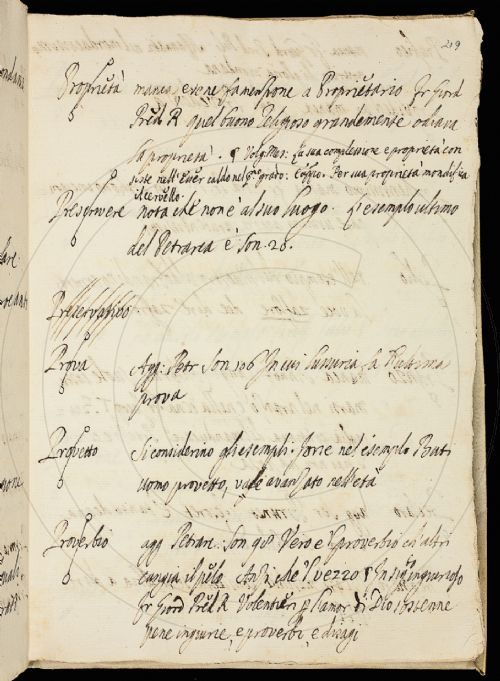 219
Proprietà manca, e se ne fa menzione a Proprietario Fr Giord
Pred. R quel buono Religioso grandemente odiava
la proprietà. ¶ Volg. Mes: La sua complessione e proprietà con
siste nell'esser caldo nel pº grado: E appo: Per sua proprietà mondifica
il cervello.
Prescrivere nota che non è al suo luogo. L'esemplo ultimo
del Petrarca è son. 28.
Preservativo
Prova Agg: Petr Son 106 In cui Lussuria fa l'ultima
prova
Provetto Si considerino gli esempli. Forse nel esemplo Buti
uomo provetto, vale avanzato nell'età
Proverbio agg Petrar: Son 98 Vero è 'l proverbio ch'altri
cangia il pelo Anzi che 'l vezzo ¶ In sigº ingiurioso
Fr Giord Pred. R Volentieri p l'amor di Dio sostenne
pene ingiurie, e proverbi, e disagi